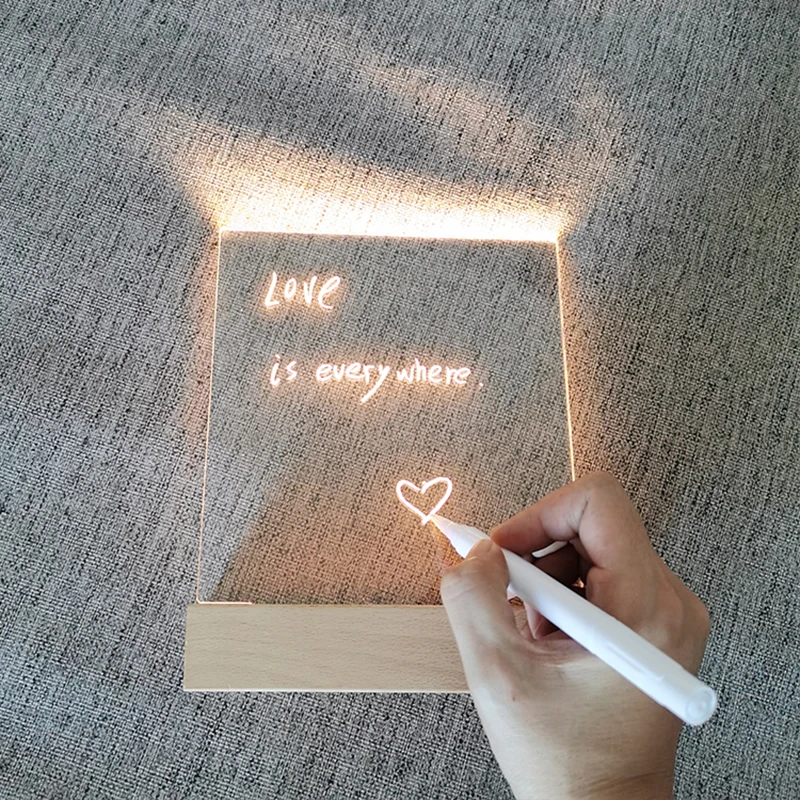 Love
is everywhere.